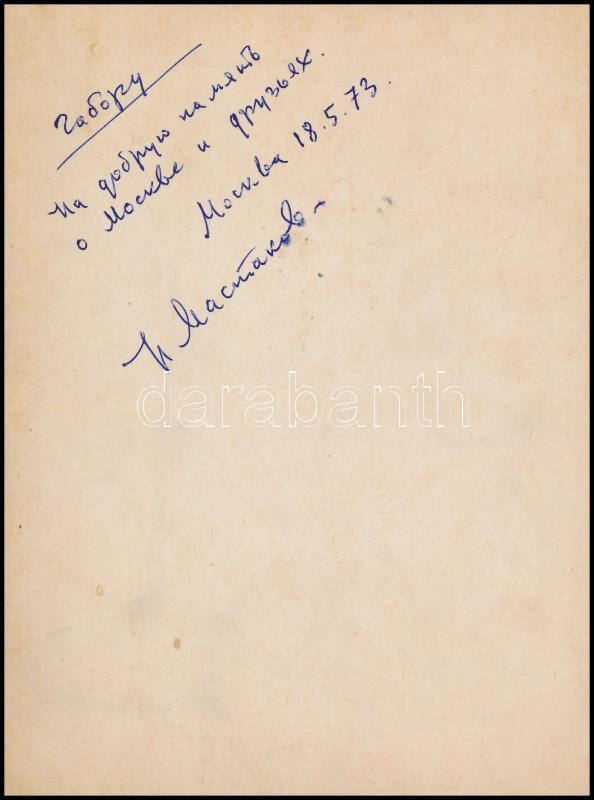 Габору
на добрую память
о Москве и друзьях.
Москва 18.5.73.
Мастаков
darabanth